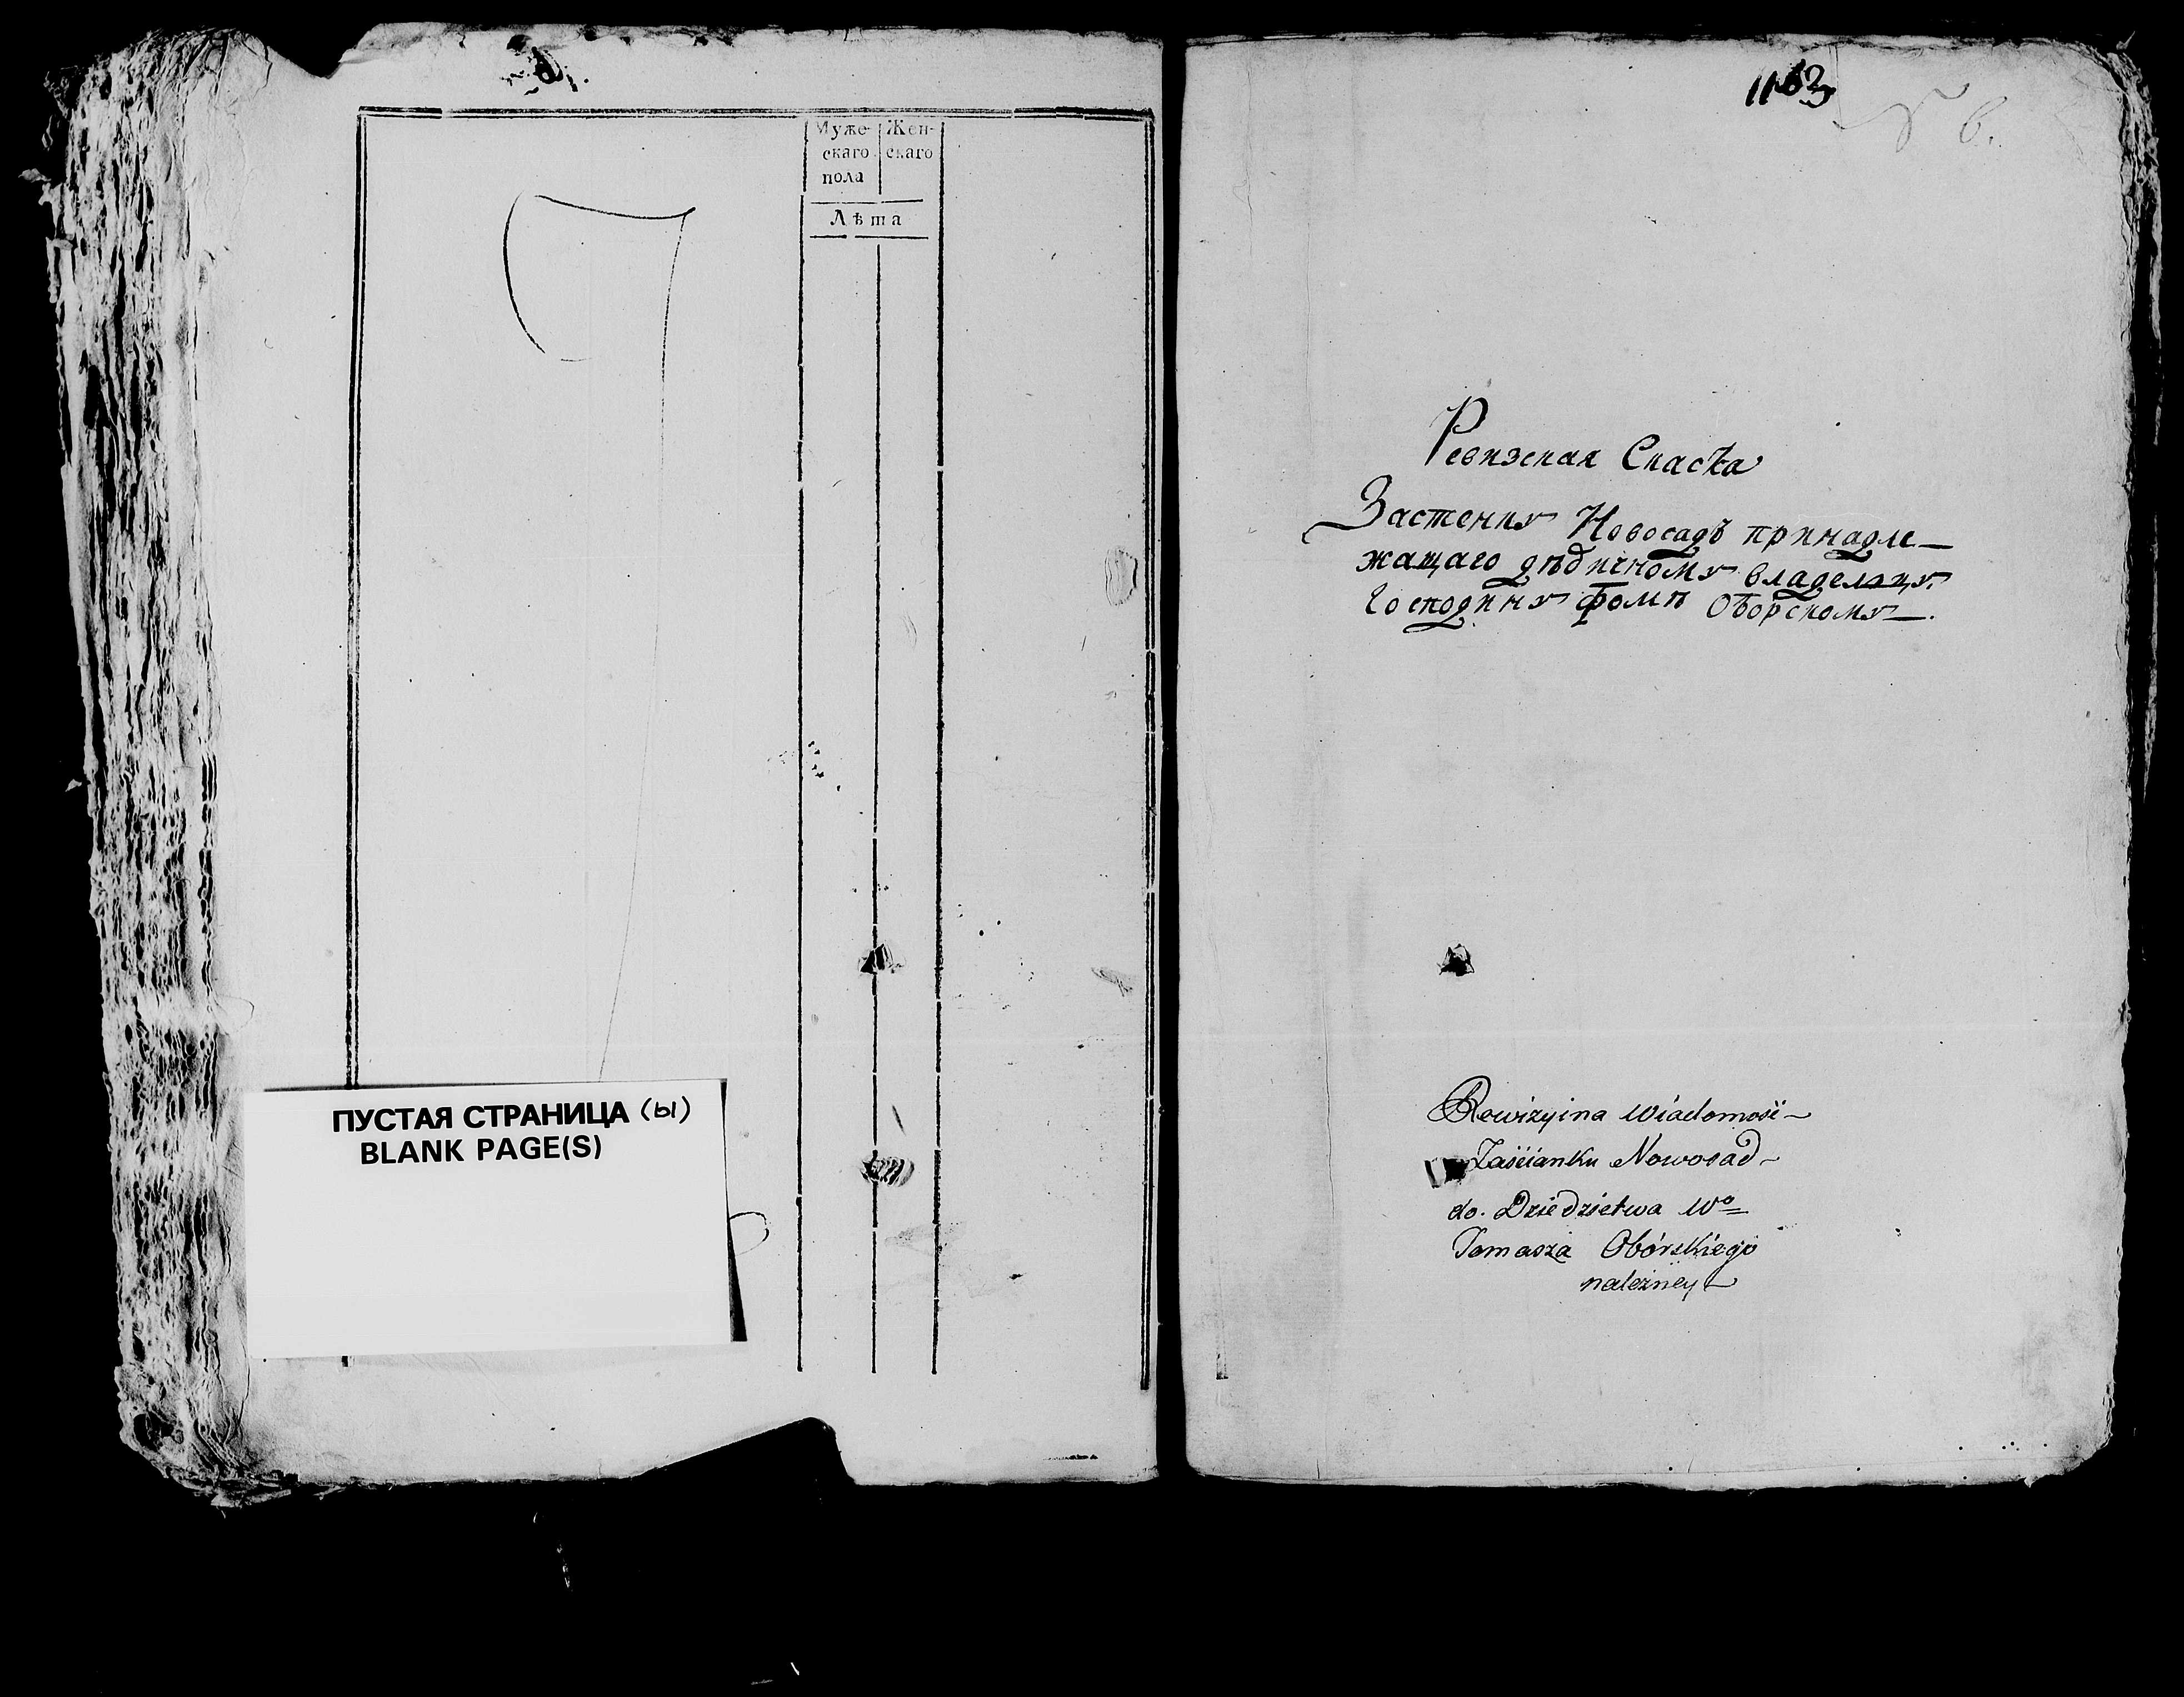 Муже- Жен-
скаго скаго
пола
Лѣта
ПУСТАЯ СТРАНИЦА (Ы)
BLANK PAGE(S)
1163
№ 6.
Ревизская Скаска
Застенку Новосадъ принадле-
жащаго дѣдичному владельцу
Господину Фомѣ Оборскому.
Rewizyina Wiadomość
Zaścianku Nowosad
do Dziedzictwa Wo
Tomasza Obórskiego
należney